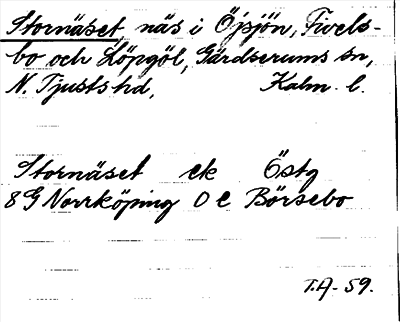 Stornäset, näs i Öjsjön, Fivels-
bo och Löpgöl, Gärdserums sn,
N. Tjusts hd, Kalm. l.
Stornäset ek Östg
8G Norrköping 0e Börsebo
T.A-59.